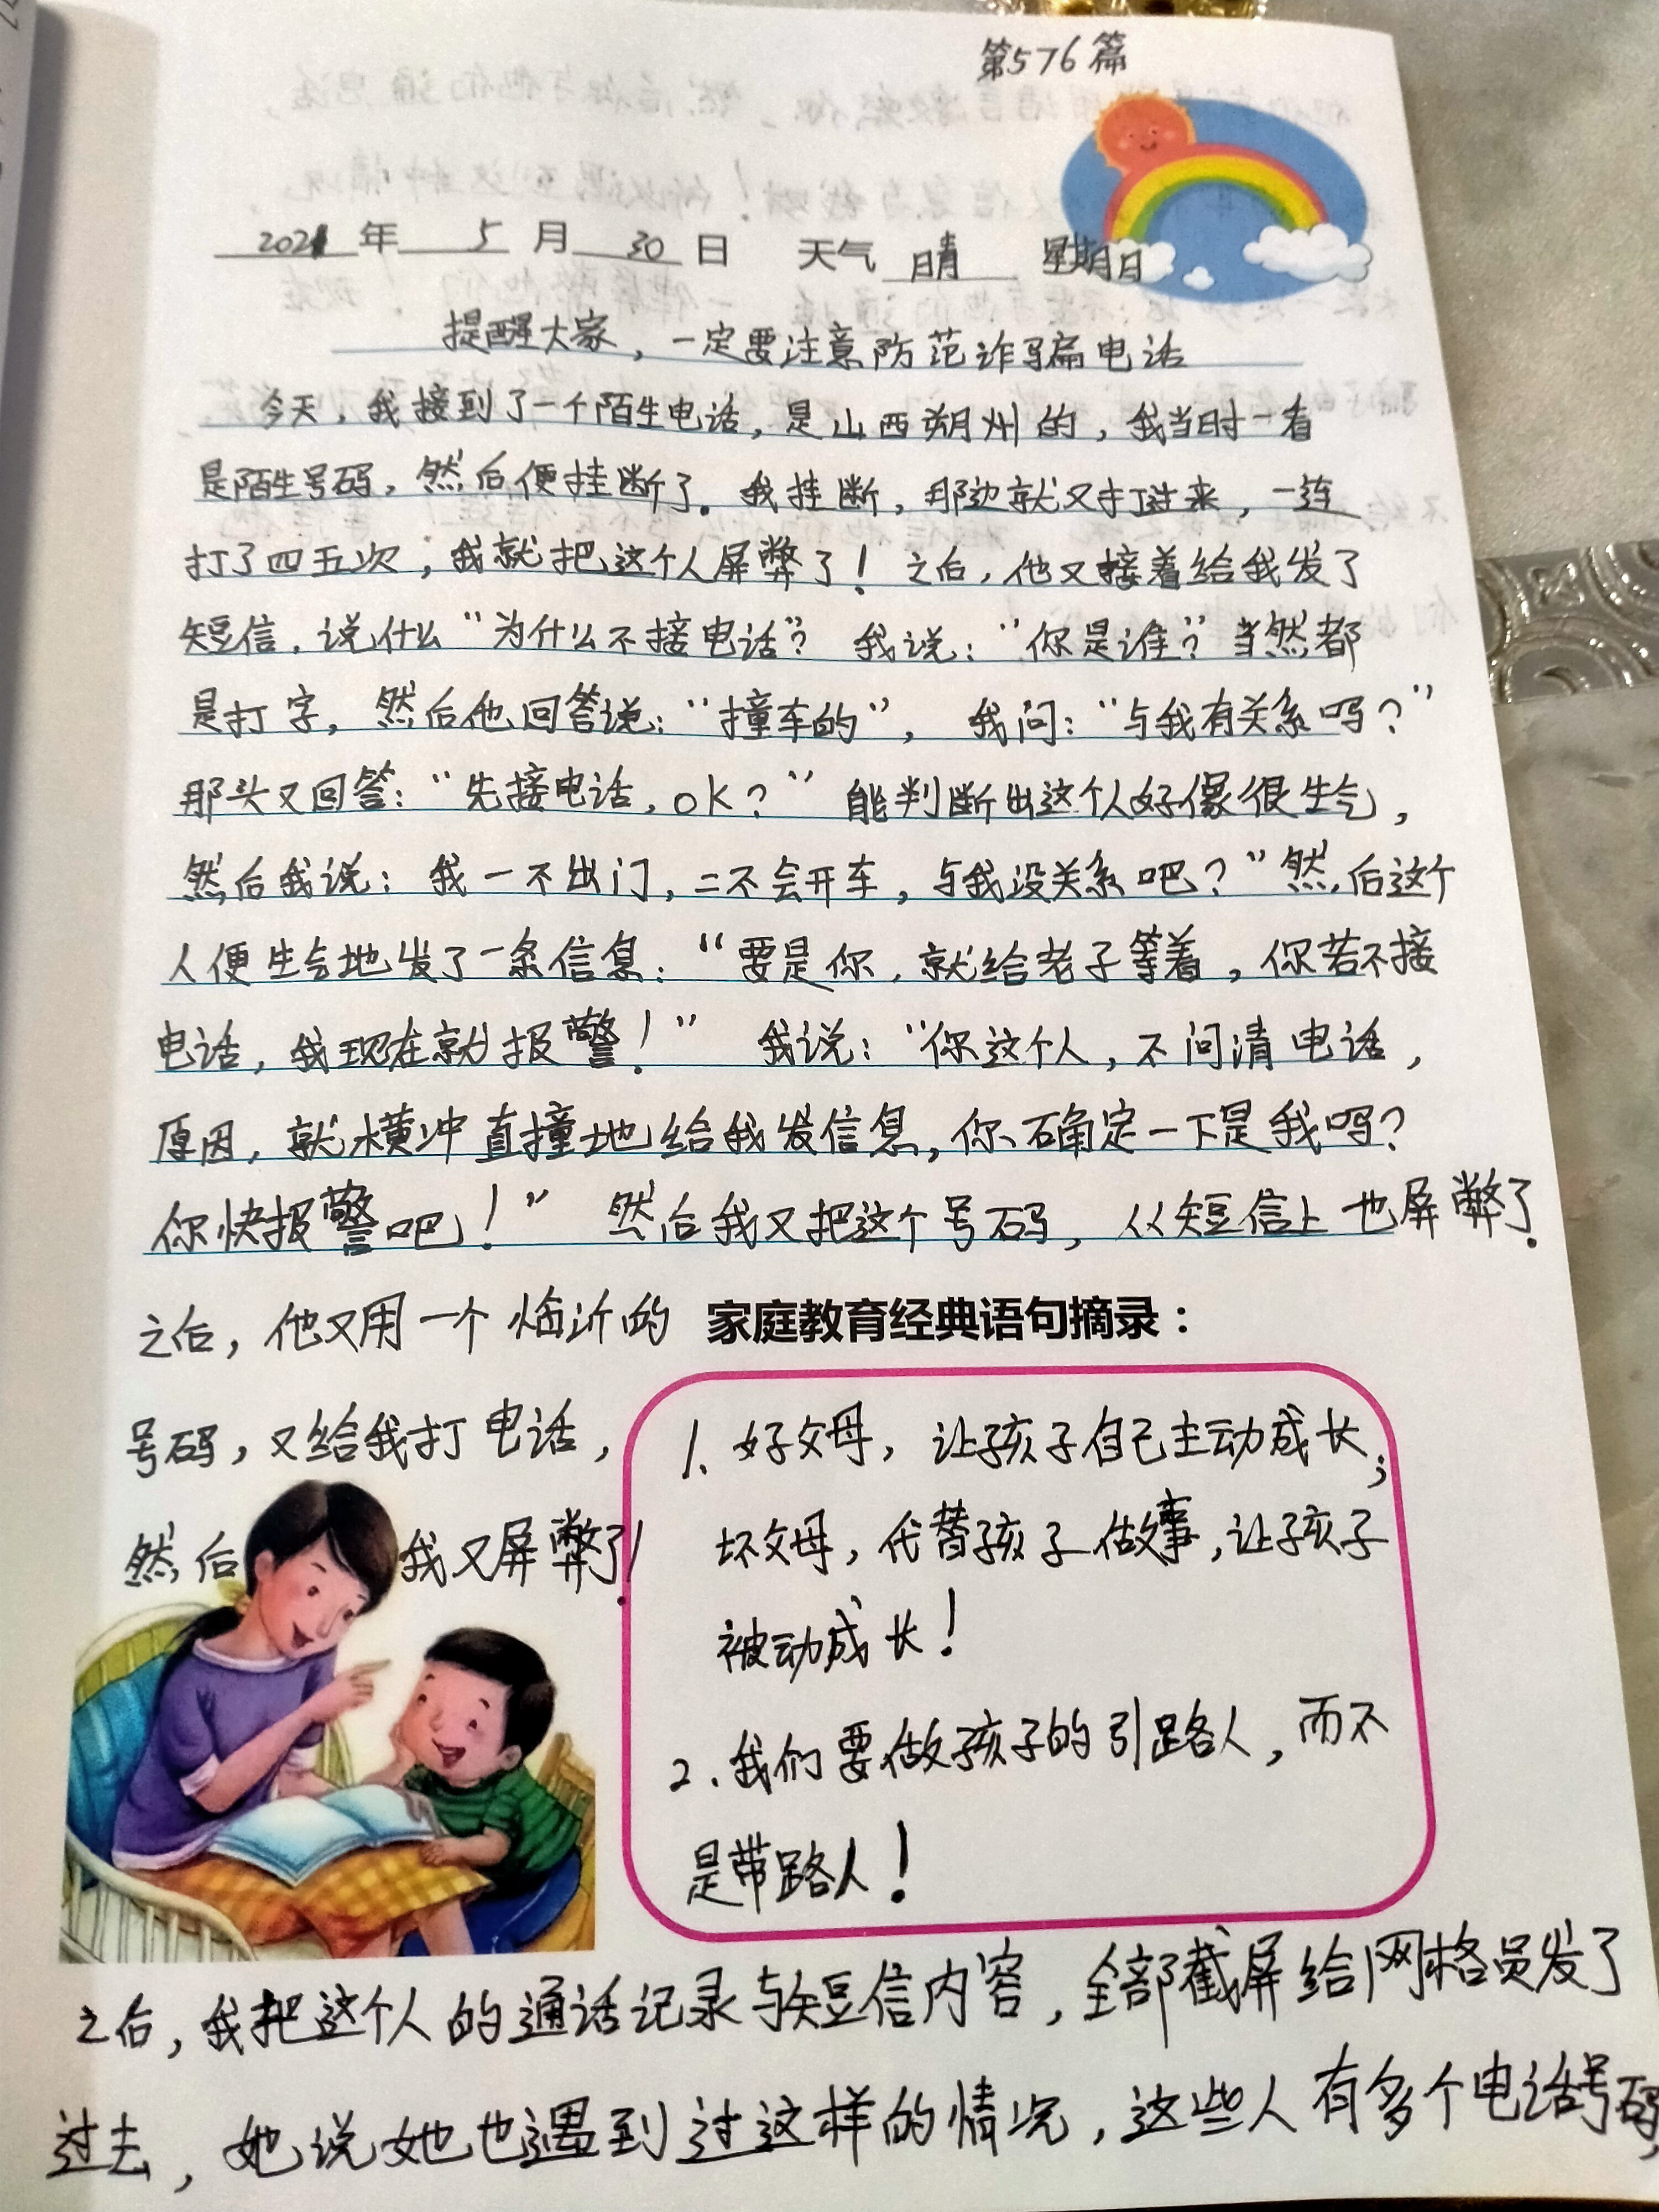 第576篇
2021年5月30日 天气晴 星期日
提醒大家，一定要注意防范诈骗电话
今天，我接到了一个陌生电话，是山西朔州的，我当时一看
是陌生号码，然后便挂断了。我挂断，那边就又打过来，一连
打了四五次，我就把这个人屏弊了！之后，他又接着给我发了
短信，说什么“为什么不接电话”？我说：“你是谁？”当然都
是打字，然后他回答说：“撞车的”，我问：“与我有关系吗？”
那头又回答：“先接电话，ok？”能判断出这个人好像很生气，
然后我说：我一不出门，二不会开车，与我没关系吧？”然后这个
人便生气地发了一条信息：“要是你，就给老子等着，你若不接
电话，我现在就报警！”我说：“你这个人，不问清电话，
原因，就横冲直撞地给我发信息，你确定一下是我吗？
你快报警吧！”然后我又把这个号码，从短信上也屏弊了。
之后，他又用一个临沂的
号码，又给我打电话，
然后我又屏弊了！
家庭教育经典语句摘录：
1、好父母，让孩子自己主动成长；
坏父母，代替孩子做事，让孩子
被动成长！
2、我们要做孩子的引路人，而不
是带路人！
之后，我把这个人的通话记录与短信内容，全部截屏给网格员发了
过去，她说她也遇到过这样的情况，这些人有多个电话号码，